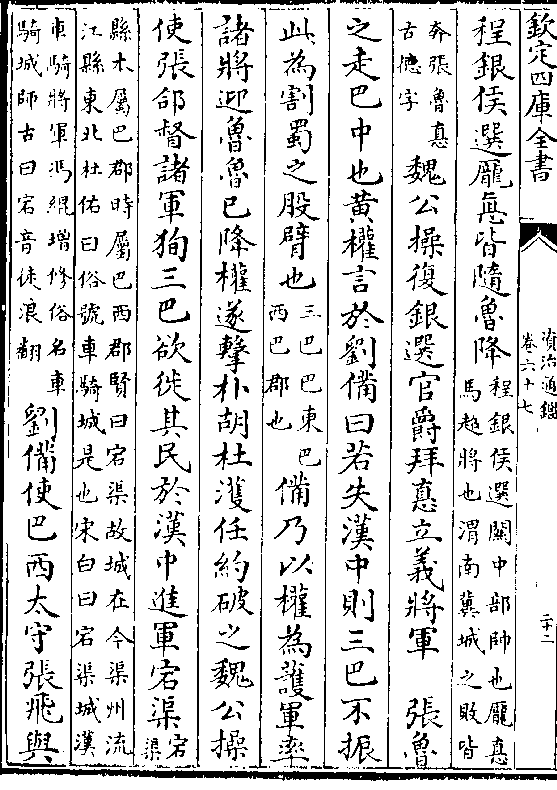 欽定四庫全書
資治通鑑
卷六十七
二十二
程銀侯選龎惪皆隨魯降
程銀侯選關中部帥也龎惪
馬超將也渭南冀城之敗皆
奔張魯惪
古徳字
魏公操復銀選官爵拜惪立義將軍　張魯
之走巴中也黄權言於劉備曰若失漢中則三巴不振
此為割蜀之股臂也
三巴巴東巴
西巴郡也
備乃以權為護軍率
諸將迎魯魯已降權遂擊朴胡杜濩任約破之魏公操
使張郃督諸軍狥三巴欲徙其民於漢中進軍宕渠
宕
渠
縣本屬巴郡時屬巴西郡賢曰宕渠故城在今渠州流
江縣東北杜佑曰俗號車騎城是也宋白曰宕渠城漢
車騎將軍馮緄増修俗名車
騎城師古曰宕音徒浪翻
劉備使巴西太守張飛與